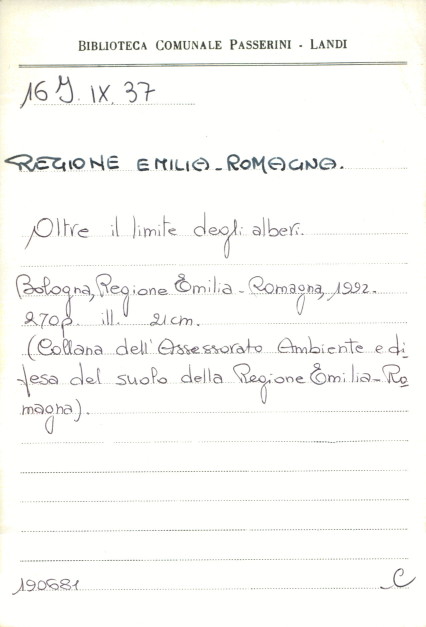 BIBLIOTECA COMUNALE PASSERINI - LANDI
16 J. IX. 37
REGIONE EMILIA-ROMAGNA.
Oltre il limite degli alberi.
Bologna, Regione Emilia-Romagna, 1992.
270p. ill. 21cm.
(Collana dell'Assessorato Ambiente e di
fesa del suolo della Regione Emilia-Ro
magna).
190681 C